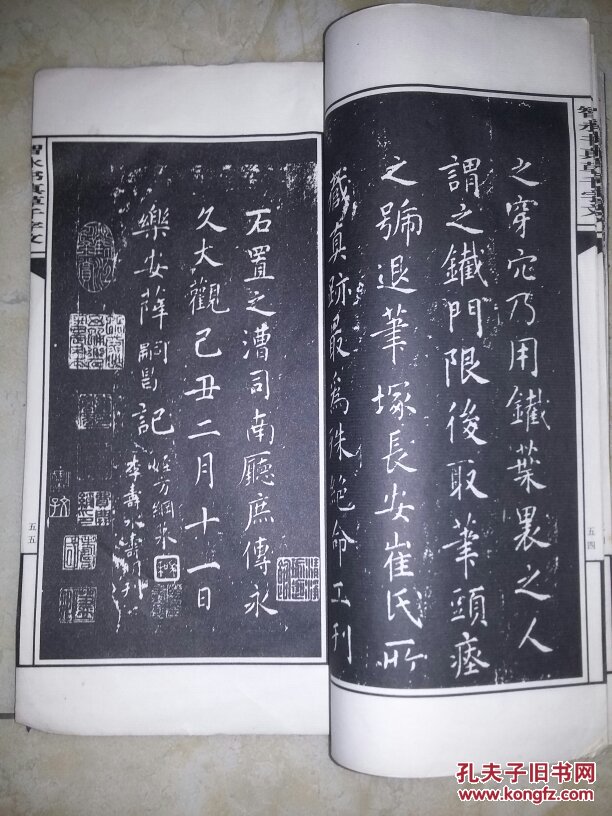 智永书真草千字文
之穿穴乃用鐵葉裹之人
謂之鐵門限後取筆頭瘞
之號退筆塚長安崔氏所
藏真跡最爲殊絕命工刊
五四
石置之漕司南廳庶傳永
久大觀己丑二月十一日
樂安薛嗣昌記
李壽永壽明刊
智永书真草千字文
五五
孔夫子旧书网
www.kongfz.com